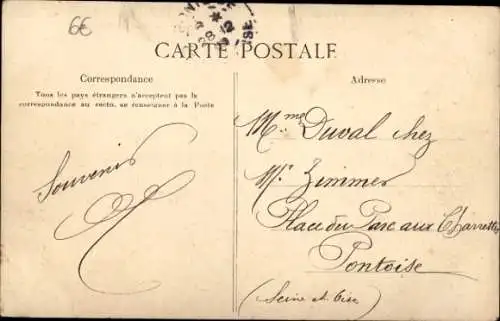 6€
CARTE POSTALE
Correspondance
Tous les pays étrangers n'acceptent pas la
correspondance au recto, se renseigner à la Poste
Souvenir
Adresse
Mme Duval chez
Mr Zimmer
Place du Parc aux Charrettes
Pontoise
(Seine et Oise)